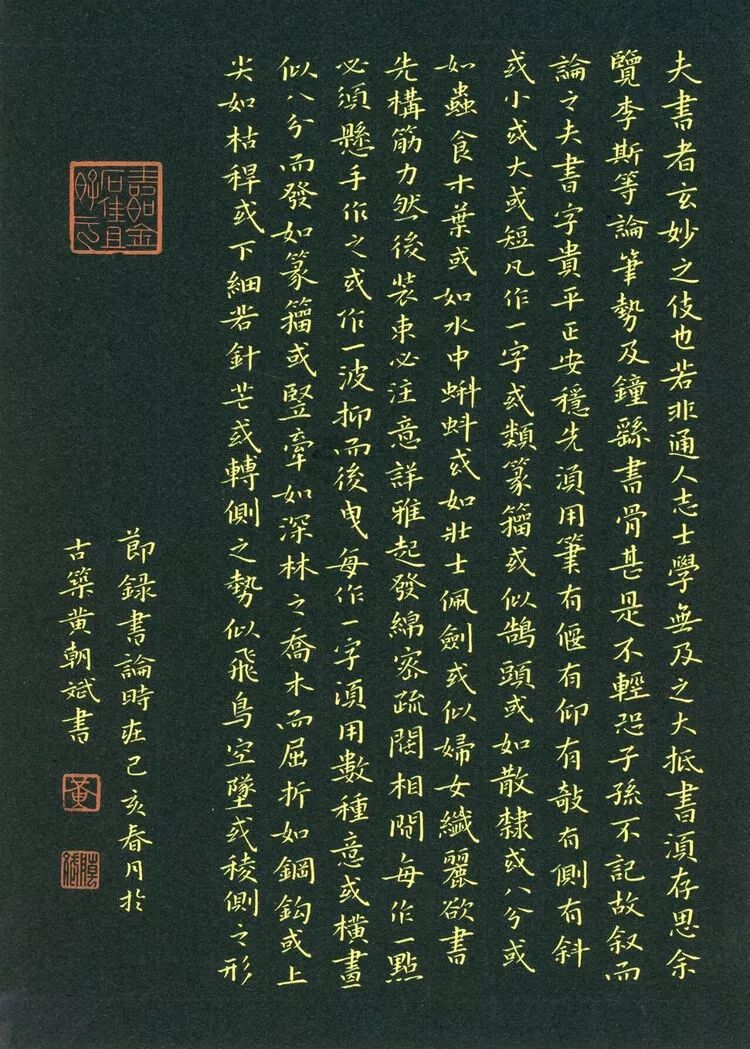 夫書者玄妙之伎也若非通人志士學無及之大抵書須存思余
覽李斯等論筆勢及鐘繇書骨甚是不輕恐子孫不記故敘而
論之夫書字貴平正安穩先須用筆有偃有仰有攲有側有斜
或小或大或短凡作一字或類篆籀或似鵠頭或如散隸或八分或
如蟲食木葉或如水中蝌蚪或如壯士佩劍或似婦女纖麗欲書
先構筋力然後裝束必注意詳雅起發綿密疏闊相間每作一點
必須懸手作之或作一波抑而後曳每作一字須用數種意或橫畫
似八分而發如篆籀或豎牽如深林之喬木而屈折如鋼鈎或上
尖如枯稈或下細若針芒或轉側之勢似飛鳥空墜或稜側之形
節錄書論時在己亥春月於
古築黃朝斌書
壽如金
石佳且
好兮
黃